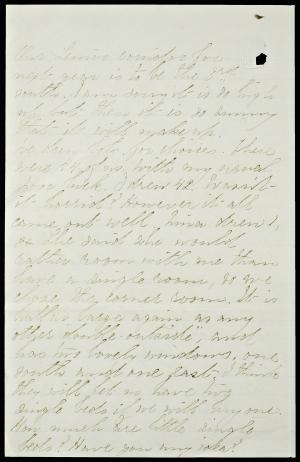 Our Senior corridor for
next year is to be the 3rd
south. I am sorry it is so high
up but then it is so sunny
that it will make up.
We drew lots for choices. There
were 54 of us, with my usual
good luck. I drew 42. Wasn't
it horrid? However it all
came out well. drew 1,
& she said she would
rather room with me than
have a single room, so we
chose the corner room. It is
half as large again as any
other double "outside", and
has two lovely windows, one
south and one east. I think
they will let us have two
single beds if we will buy one.
How much are little single
beds? Have you any idea?